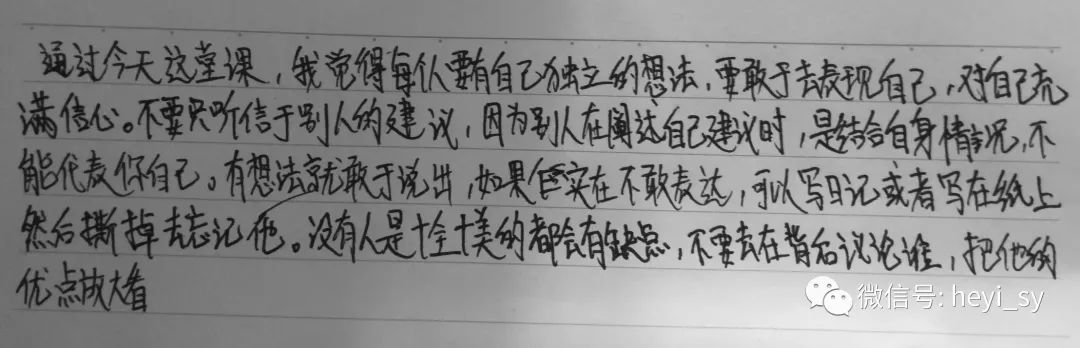 通过今天这堂课，我觉得每个人要有自己独立的想法，要敢于去表现自己，对自己充
满信心。不要只听信于别人的建议，因为别人在阐述自己建议时，是结合自身情况，不
能代表你自己。有想法就敢于说出，如果实在不敢表达，可以写日记或者写在纸上
然后撕掉去忘记他。没有人是十全十美的都会有缺点，不要去在背后议论谁，把他的
优点放大看
微信号: heyi_sy